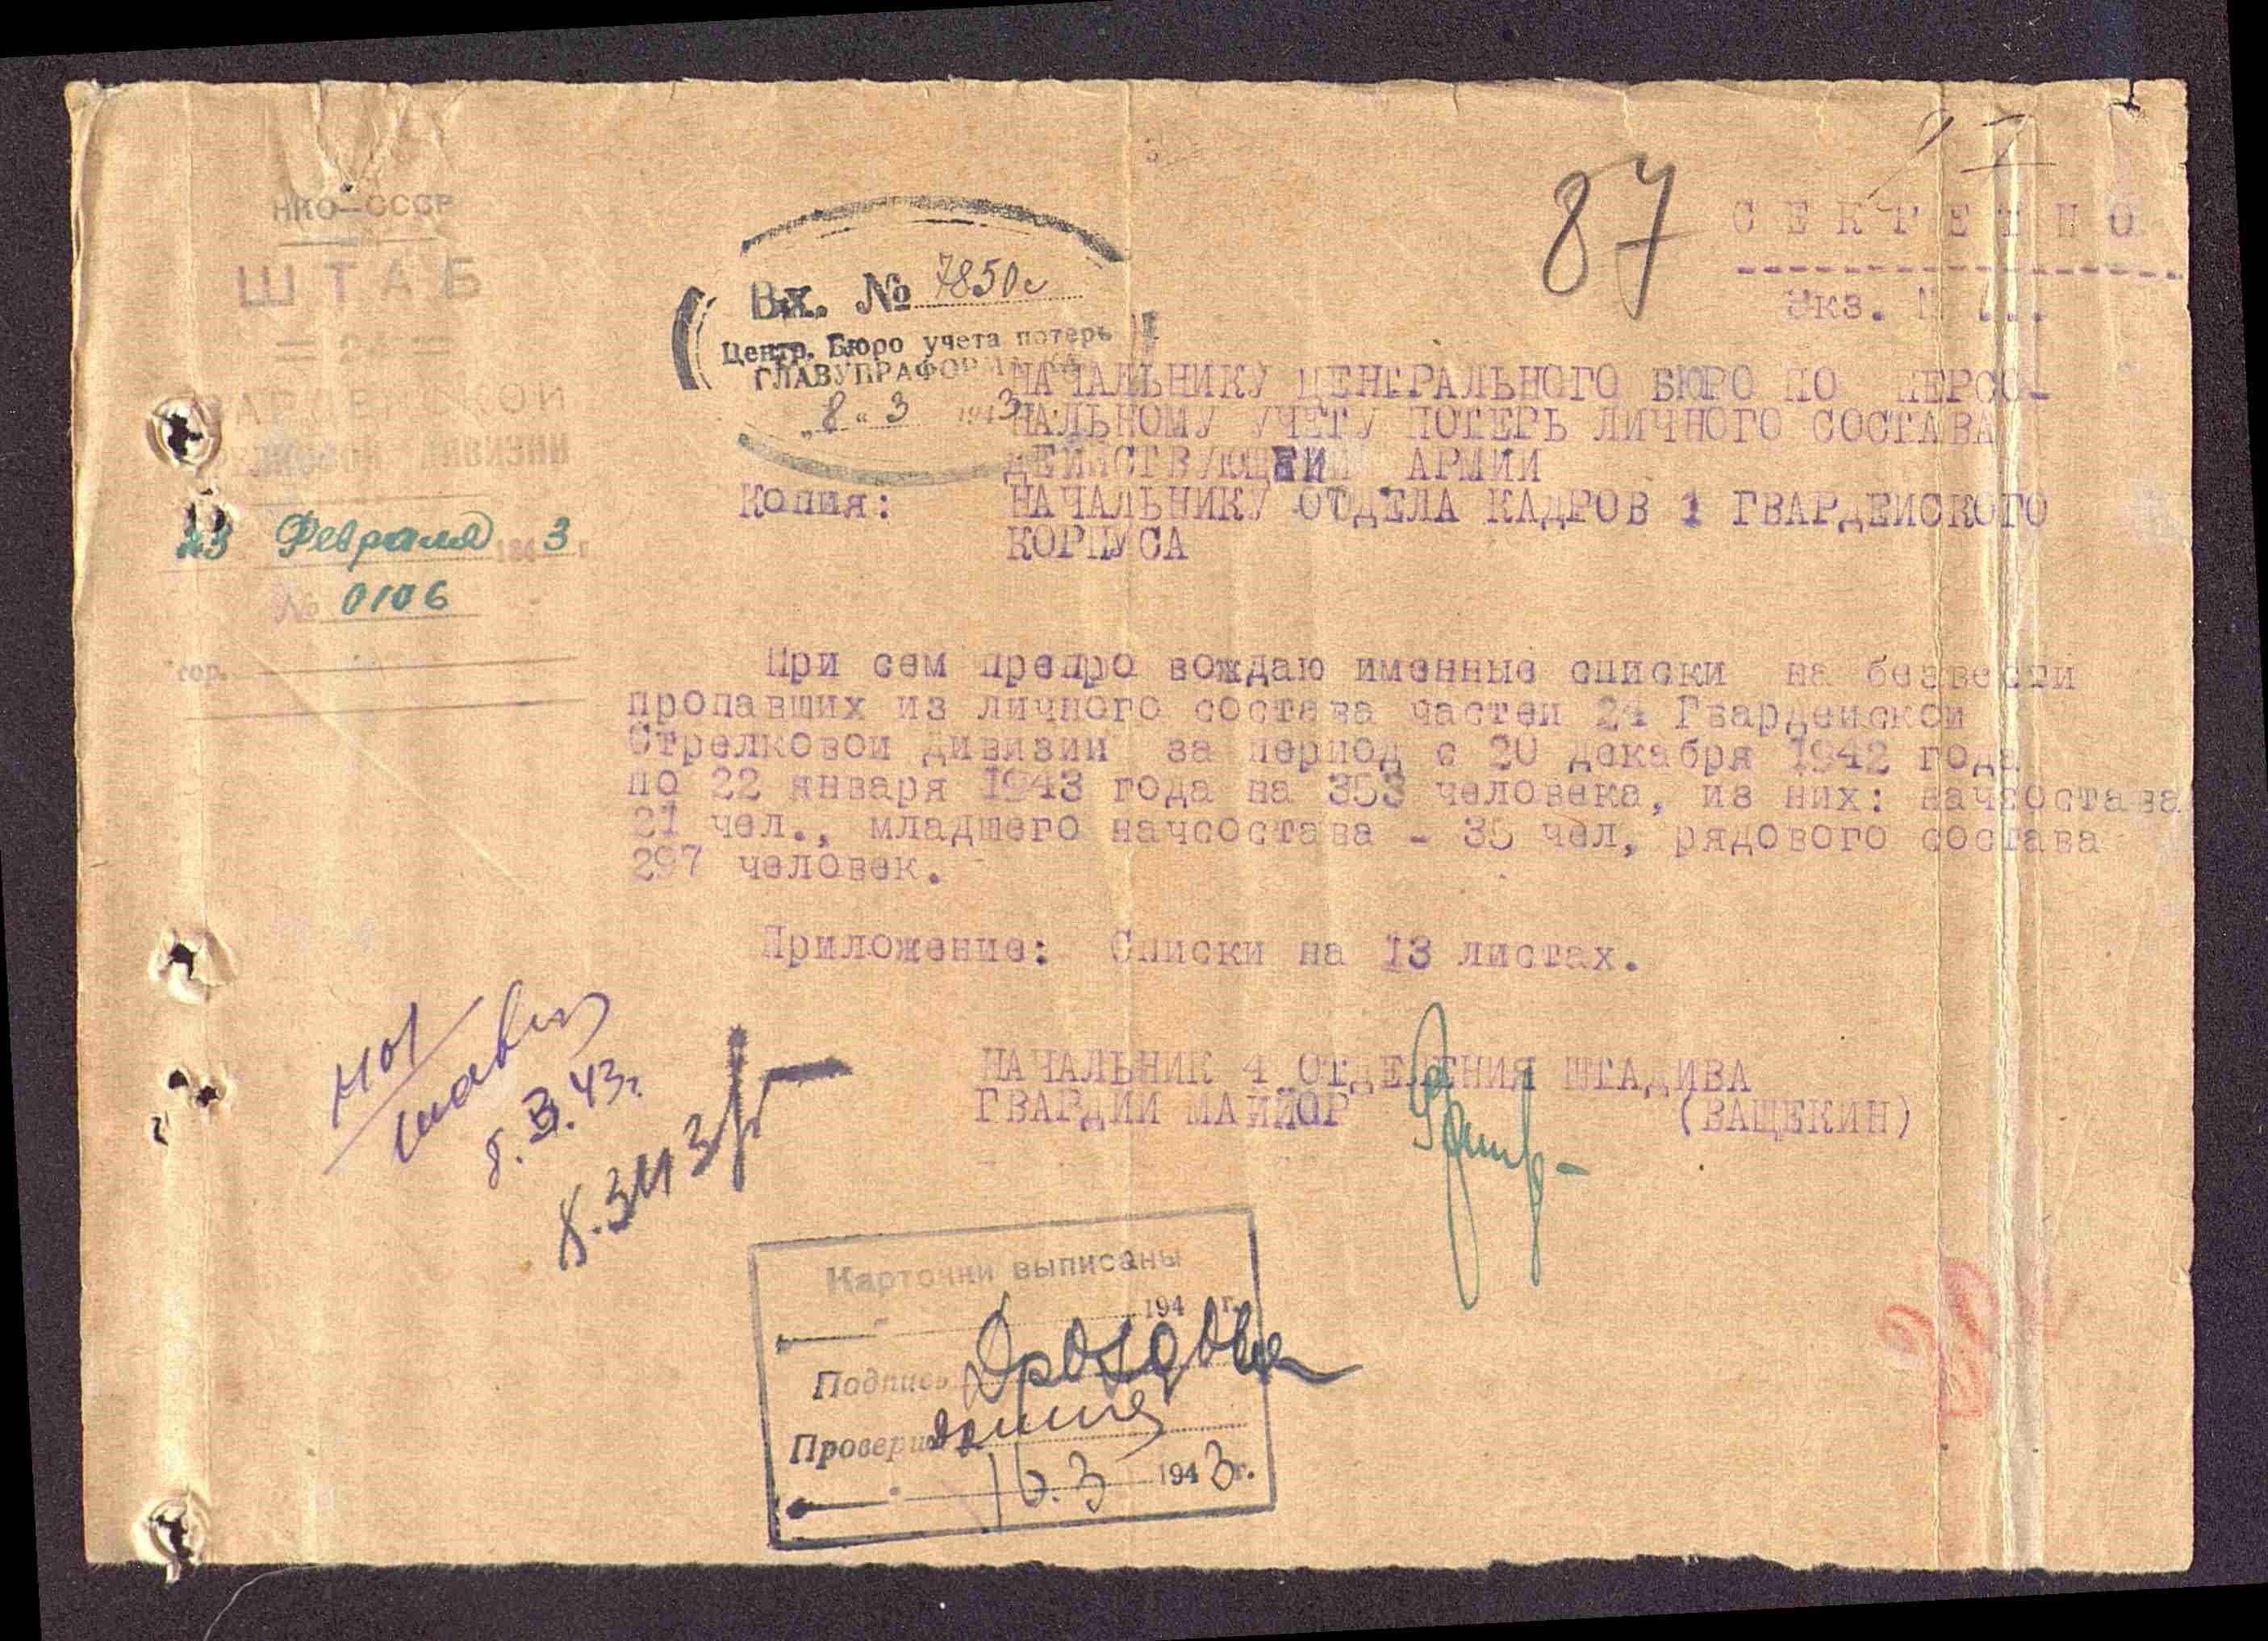 НКО-СССР
ШТАБ
23 Февраля 1943 г.
№ 0106
гор.
Вх. № 7850с
Центр. Бюро учета потерь
ГЛАВУПРАФОРМ КА
„8" 3 1943
87
СЕКРЕТНО
Экз. №
НАЧАЛЬНИКУ ЦЕНТРАЛЬНОГО БЮРО ПО ПЕРСО-
НАЛЬНОМУ УЧЕТУ ПОТЕРЬ ЛИЧНОГО СОСТАВА
ДЕЙСТВУЮЩЕЙ АРМИИ
Копия: НАЧАЛЬНИКУ ОТДЕЛА КАДРОВ 1 ГВАРДЕЙСКОГО
КОРПУСА
При сем препро вождаю именные списки на безвести
пропавших из личного состава частей 24 Гвардейской
Стрелковой дивизии за период с 20 декабря 1942 года
по 22 января 1943 года на 353 человека, из них: начсостава
21 чел., младшего начсостава - 35 чел, рядового состава
297 человек.
Приложение: Списки на 13 листах.
НАЧАЛЬНИК 4 ОТДЕЛЕНИЯ ШТАДИВА
ГВАРДИИ МАЙЙОР (ВАЩЕКИН)
8.III.43г.
8.3.43г
Карточки выписаны
194 г.
Подпись Дроздова
Проверил
16.3 1943г.